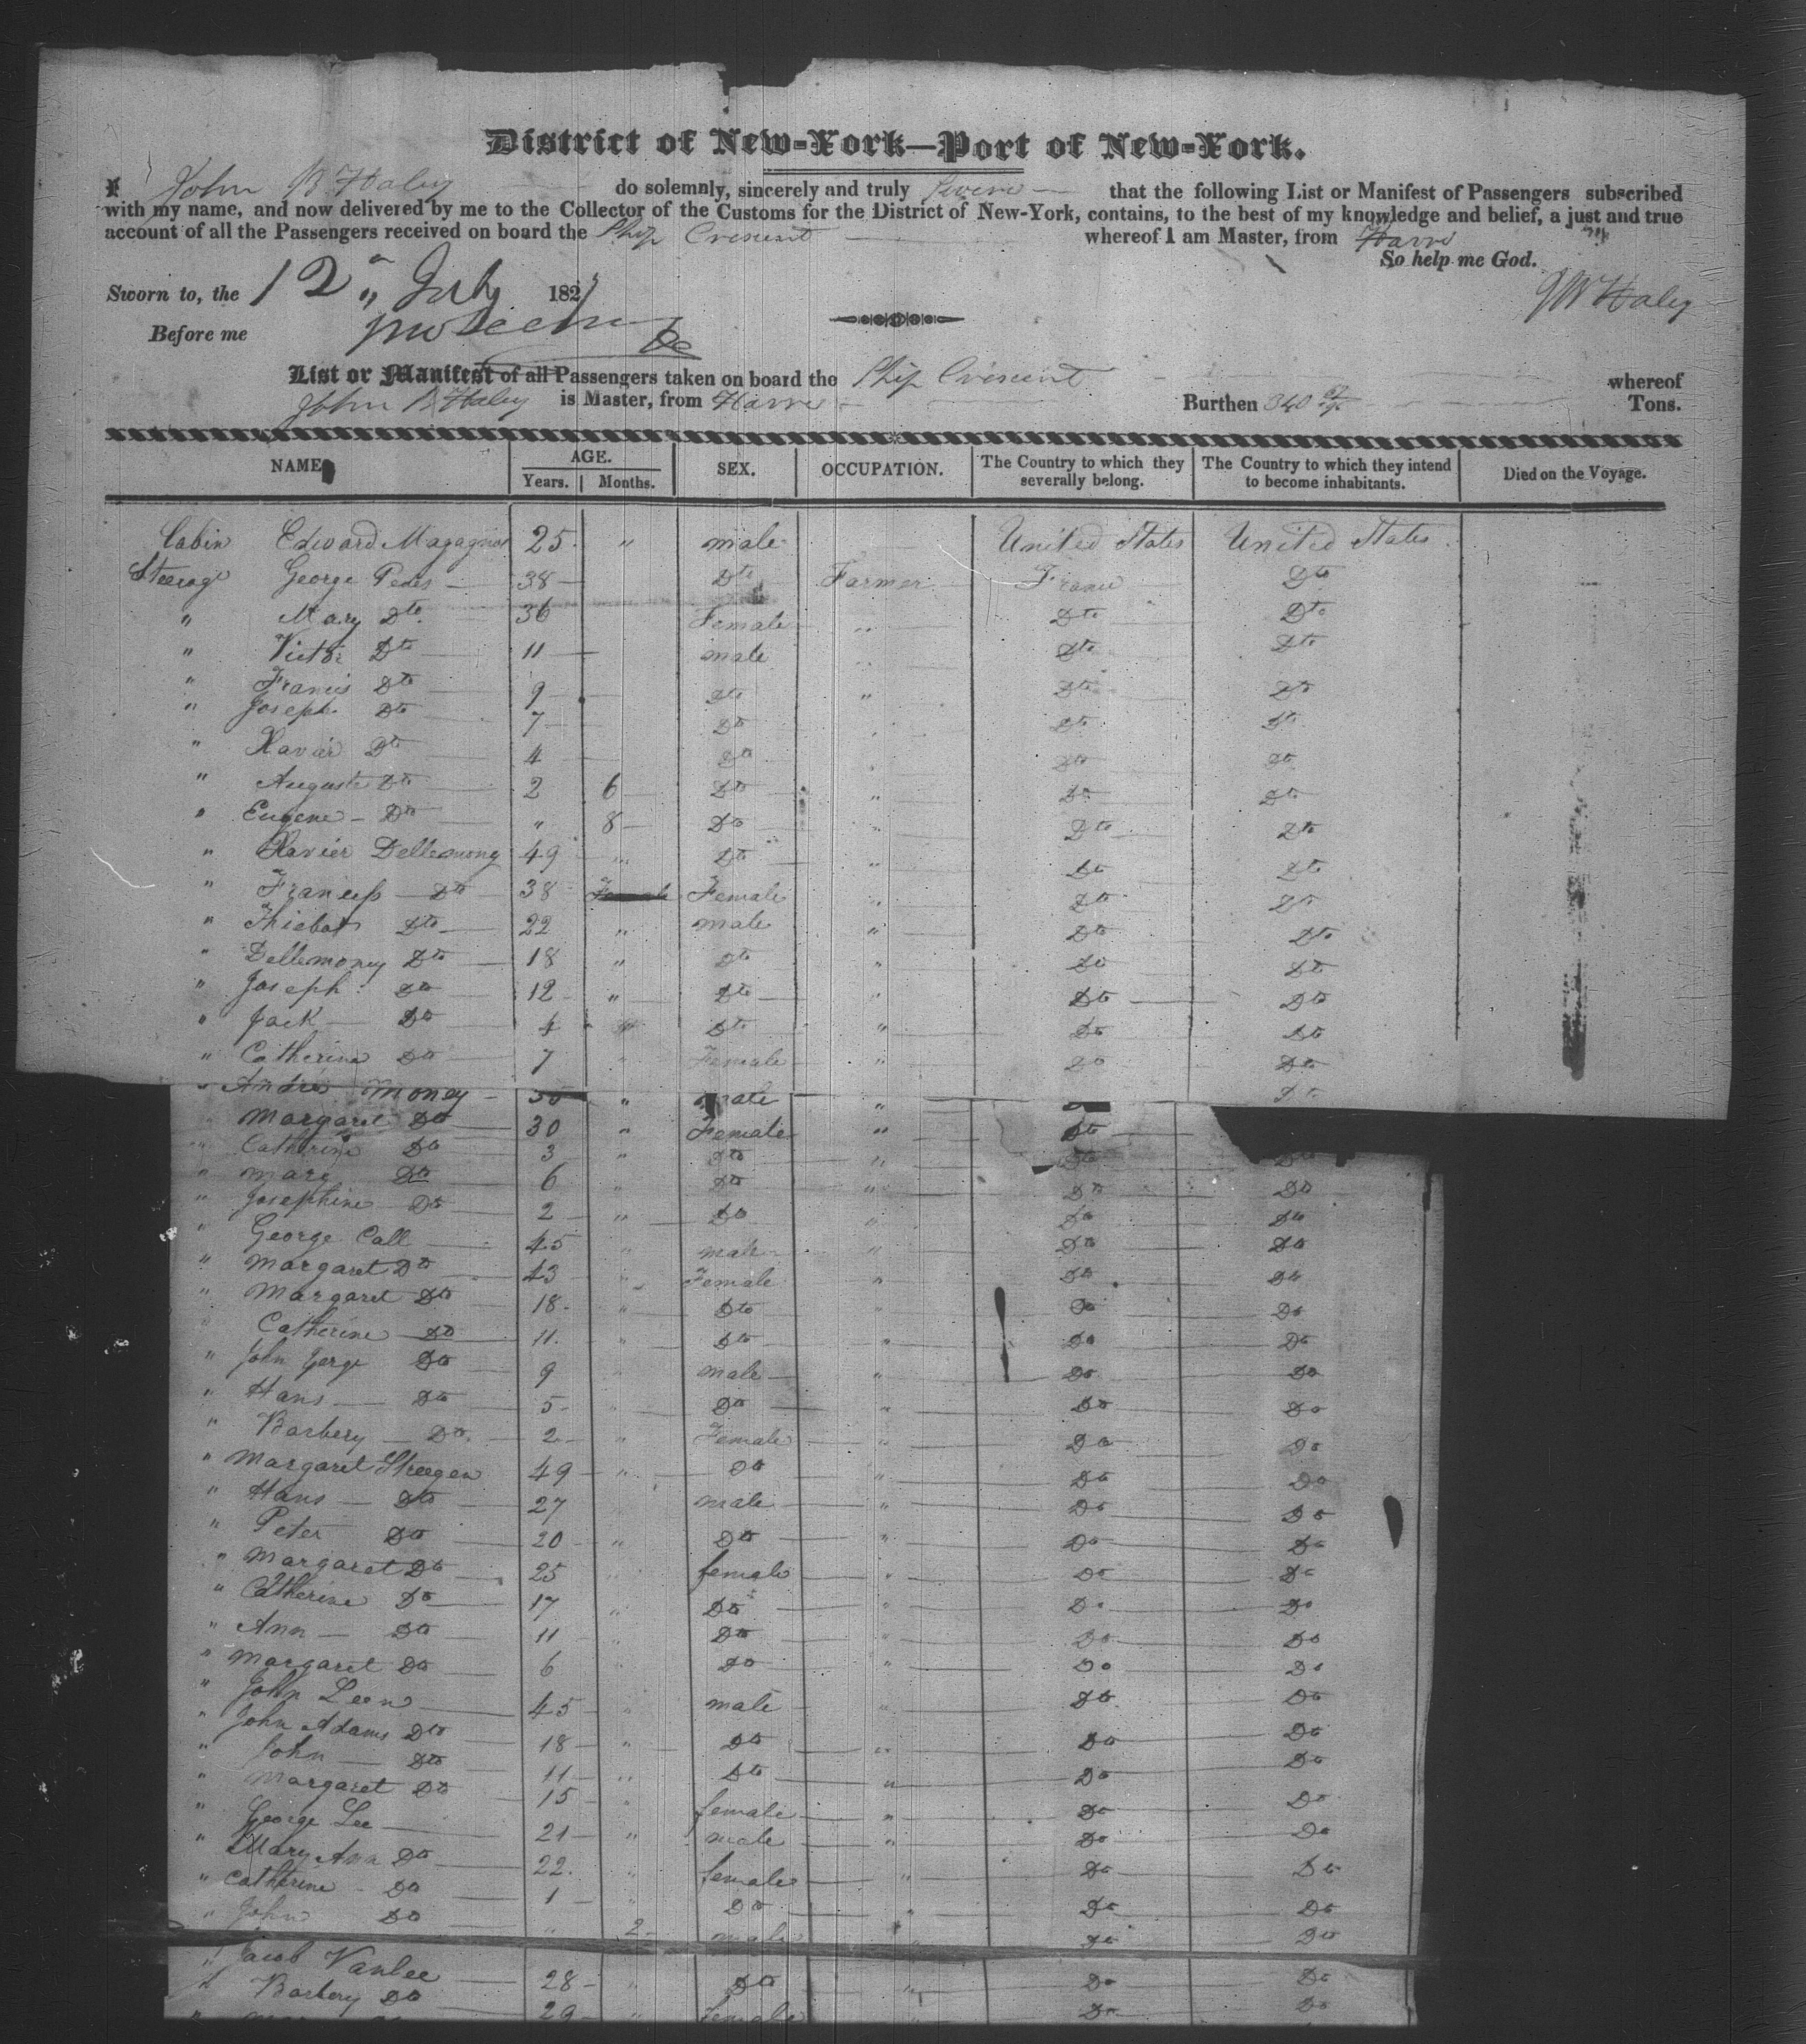 District of New-York—Port of New-York.
I John B Haley do solemnly, sincerely and truly that the following List or Manifest of Passengers subscribed
with my name, and now delivered by me to the Collector of the Customs for the District of New-York, contains, to the best of my knowledge and belief, a just and true
account of all the Passengers received on board the Ship Cresent whereof I am Master, from Havre
So help me God.
Sworn to, the 12 " July 182
J B Haley
Before me
List or Manifest of all Passengers taken on board the Ship Cresent whereof
John B Haley is Master, from Havre Burthen 340 Tons.
NAME AGE. SEX. OCCUPATION. The Country to which they severally belong. The Country to which they intend to become inhabitants. Died on the Voyage.
Years. Months.
Cabin Edward 25 " male United States United States
Steerage George 38 Dto Farmer France Dto
" Mary Dto 36 Female " Dto Dto
" Victor Dto 11 male " Dto Dto
" Francis Dto 9 Dto " Dto Dto
" Joseph Dto 7 Dto " Dto Dto
" Xavier Dto 4 Dto " Dto Dto
" Auguste Dto 2 6 Dto " Do Dto
" Eugene Do " 8 Do " Dto Dto
" Xavier Dellemoney 49 " Dto " Do Dto
" Dto 38 Female Female " Dto Dto
" Thiebat Dto 22 " male " Dto Dto
" Dellemoney Dto 18 " Dto " Do Dto
" Joseph Do 12 " Dto " Dto Dto
" Jack Do 4 " Dto " Do Do
" Catherine Do 7 " Female " Do Do
" Andre Money " male "
" Margaret Do 30 " Female " Dto
" Catherine Do 3 " Dto " Dto Do
" Mary Do 6 " Do " Do Do
" Josephine Do 2 " Do " Do Do
" George Call 45 " male " Do Do
" Margaret Do 43 " Female " Do Do
" Margaret Dto 18 " Dto " Do Do
" Catherine Do 11 " Do " Do Do
" John Gorge Do 9 " male " Do Do
" Hans Do 5 " Do " Do Do
" Barbery Do 2 " Female " Do Do
" Margaret Streegen 49 " Do " Do Do
" Hans Do 27 male " Do Do
" Peter Do 20 " Do " Do Do
" Margaret Do 25 " female " Do Do
" Catherine Do 17 " Do " Do Do
" Ann Do 11 " Do " Do Do
" Margaret Do 6 " Do " Do Do
" John Leen 45 " male " Do Do
" John Adams Dto 18 " Do " Do Do
" John Do 11 " Dto " Do Do
" Margaret Do 15 " female " Do Do
" George Lee 21 " male " Do Do
" Mary Ann Do 22 " female " Do Do
" Catherine Do 1 " Do " Do Do
" John Do " 2 male " Do Do
" Jacob Vanlee 28 " Do " Do Do
" Barbery Do 29 " Female Do Do